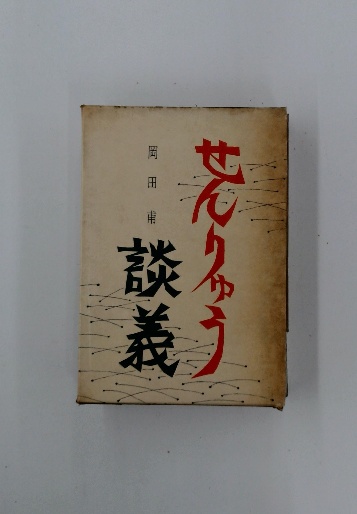 せんりゅう
談義
岡田甫